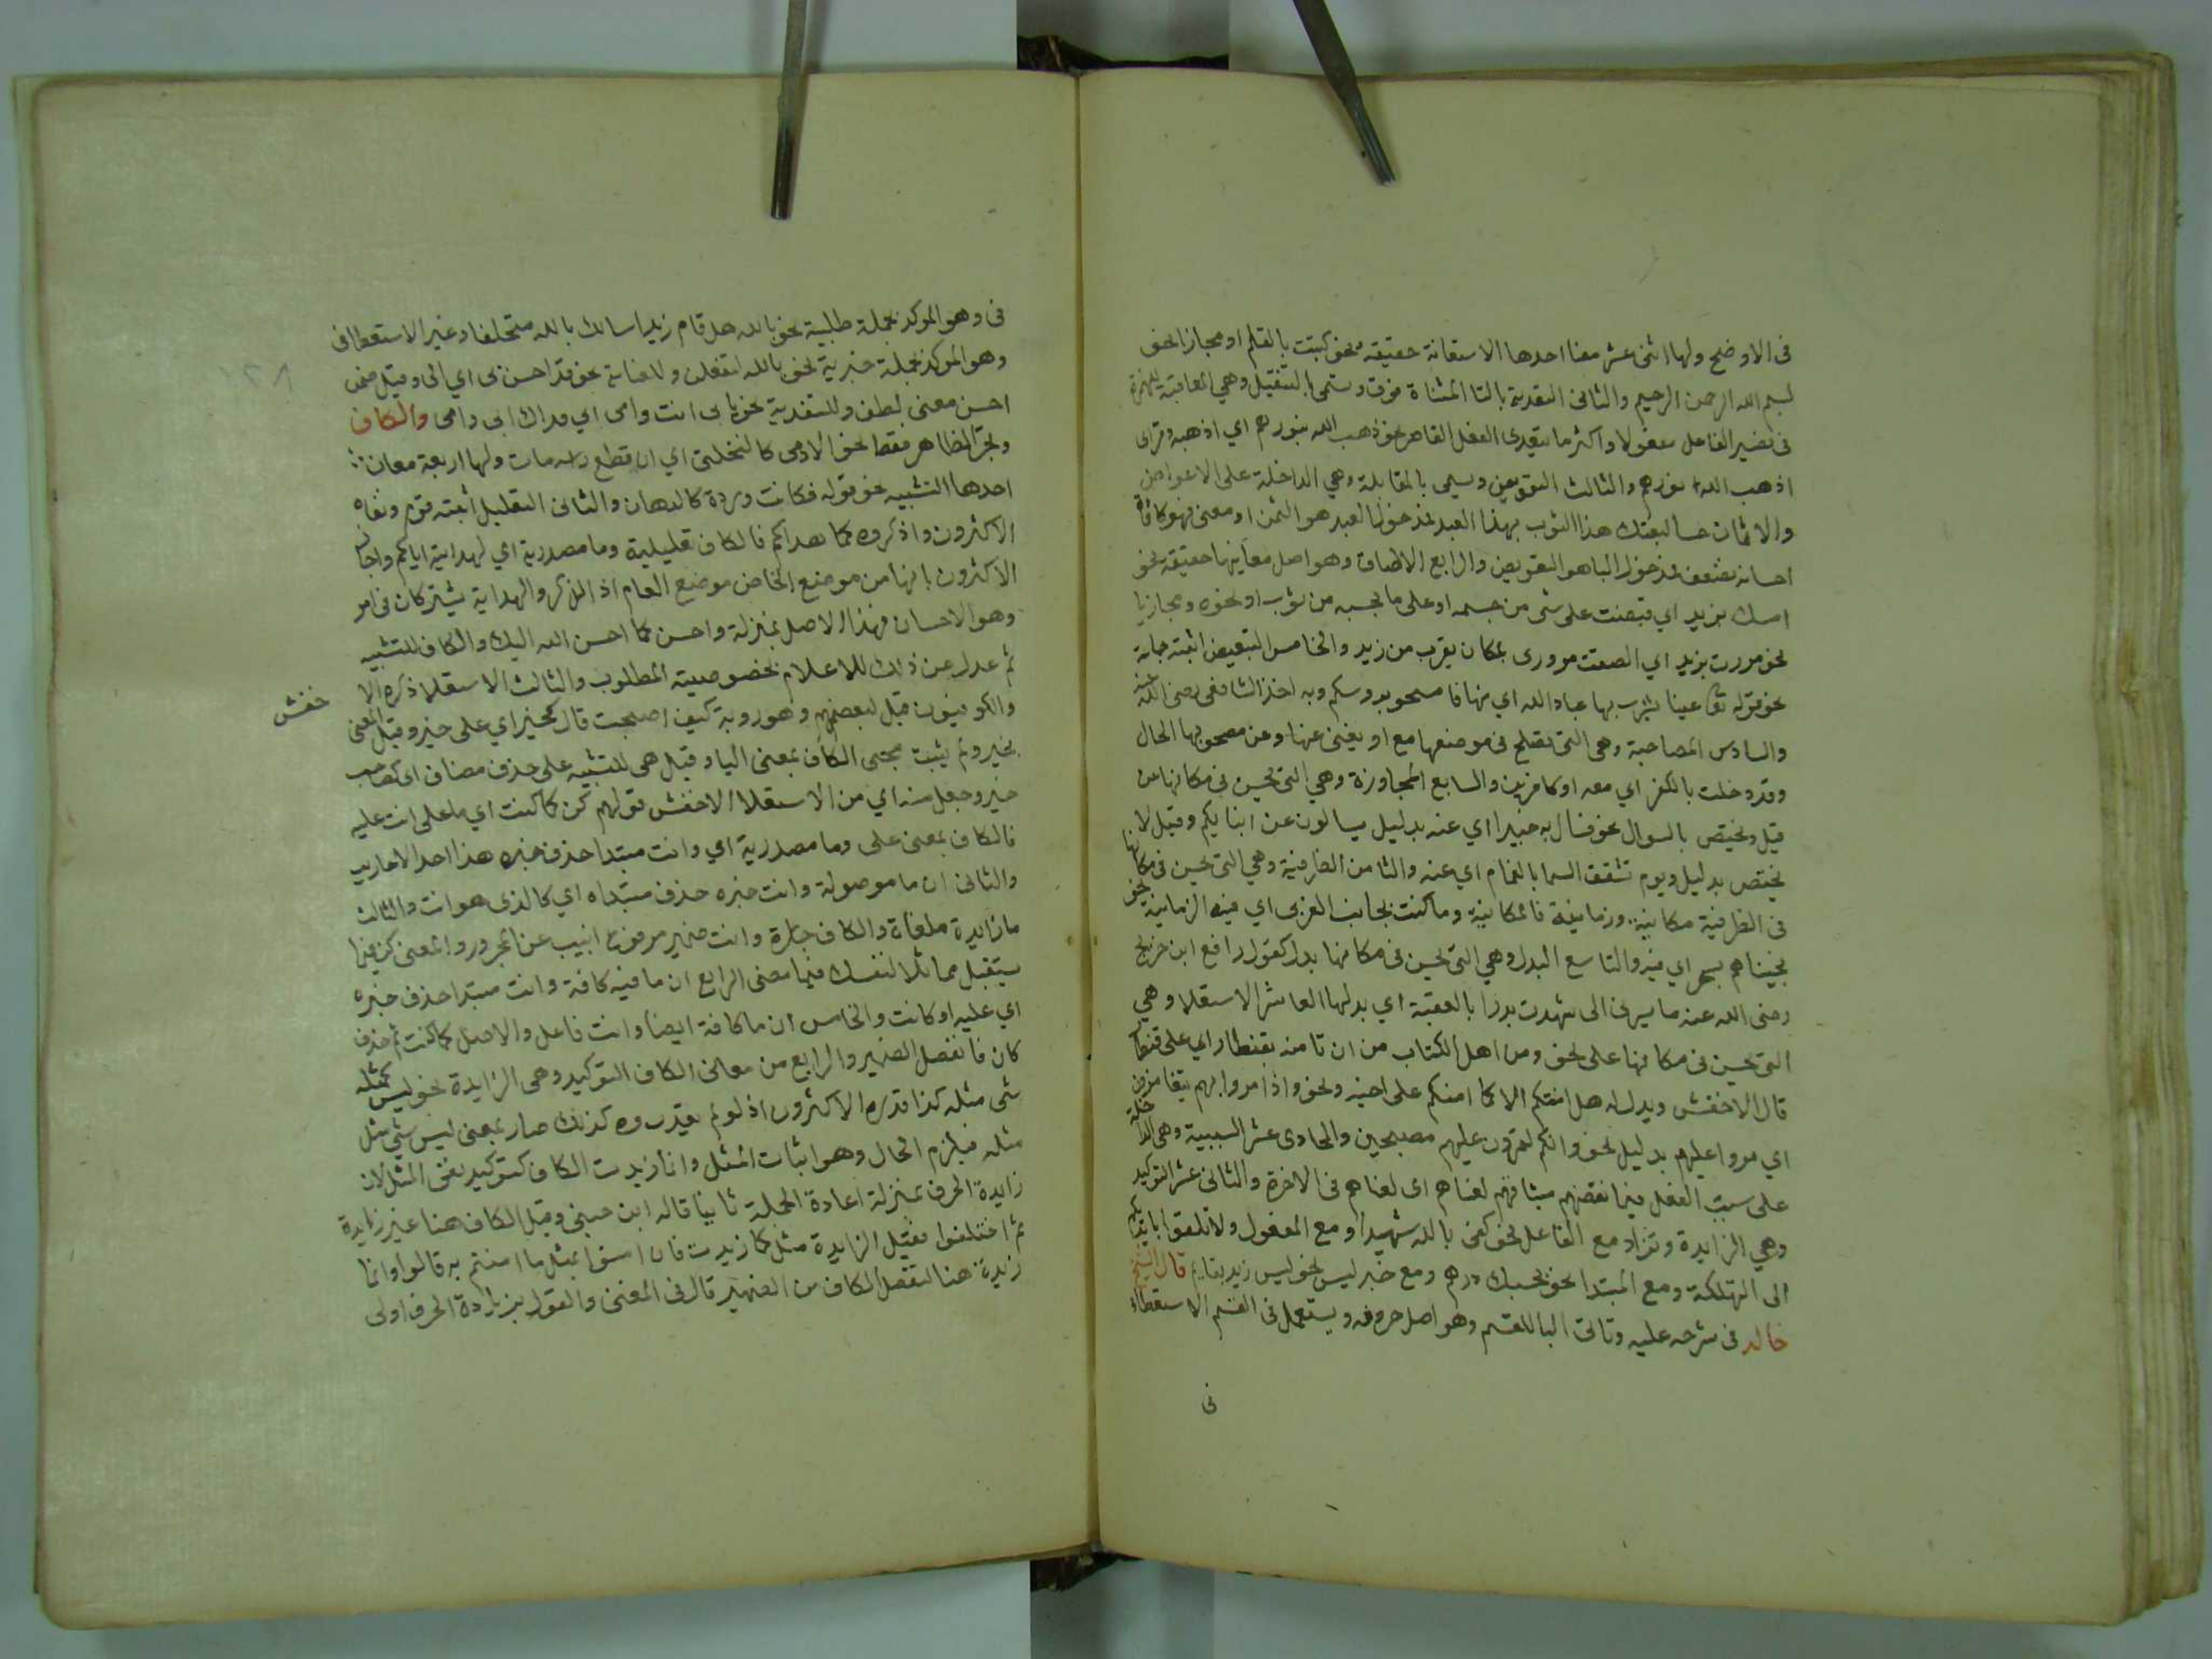 فى الاوضح ولها اثنى عشر معنا احدها الاستعانة حقيقة نحو كتبت بالقلم او مجازا نحو
بسم الله الرحمن الرحيم والثانى التعدية بالتا المثناة فوق وتسمى بالتنقيل وهي المعاقبة للهمزة
فى تصيير الفاعل مفعولا واكثر ما يتعدى الفعل القاصر نحو ذهب الله بنورهم اي اذهبه وقراى
اذهب الله نورهم والثالث التعويض ويسمى بالمقابلة وهي الداخلة على الاعواض
والاثمان حسا كبعتك هذا الثوب بهذا العبد فمدخولها العبد هو الثمن او معنى فهو كافاة
احسانه بضعف فمدخول الباهو التعويض والرابع الالصاق وهو اصل معانيها حقيقة نحو
امسك بزيد اي قبضت على شى من جسمه او على ما يحبسه من ثوب او نحوه ومجازيا
نحو مررت بزيد اي الصقت مرورى بمكان يقرب من زيد والخامس التبعيض اثبته جماعة
نحو قوله تعا عينا يشرب بها عباد الله اي منها فامسحو بروسكم وبه اخذ الشافعى رضى الله عنه
والسادس المصاحبة وهى التى تصلح فى موضعها مع او يغنى عنها وعن مصحوبها الحال
وقد دخلت بالكفر اي معه او كافرين والسابع المجاوزة وهي التى تحسن فى مكانها عن
قيل وتختص بالسوال نحو فسال به خبيرا اي عنه بدليل يسالون عن انبايكم وقيل لا
يختص بدليل ويوم تشقق السما بالغمام اي عنه والثامن الظرفية وهي التى تحسن فى مكانها
فى الظرفية مكانية وزمانية فالمكانية وما كنت بجانب الغربى اي فيه الزمانية نحو
نجيناهم بسحر اي فيه والتاسع البدل وهي التى تحسن فى مكانها بدل كقول رافع ابن خريج
رضى الله عنه ما يسرنى انى شهدت بدرا بالعقبة اي بدلها العاشر الاستعلا وهي
التى تحسن فى مكانها على نحو ومن اهل الكتاب من ان تامنه بقنطار اي على قنطار
قال الاخفش ويدل له هل امنكم الا كما امنتكم على اخيه ونحو واذا مروا بهم يتغامزون
اي مروا عليهم بدليل نحو وانكم لتمرون عليهم مصبحين والحادى عشر السببية وهى الداخلة
على سبب الفعل فبما نقضهم ميثاقهم لعناهم اى لعناهم فى الاخرة والثانى عشر التوكيد
وهي الزايدة وتزاد مع الفاعل نحو كفى بالله شهيدا ومع المفعول ولا تلقوا بايديكم
الى التهلكة ومع المبتدا نحو بحسبك درهم ومع خبر ليس نحو ليس زيد بقايم قال الشيخ
خالد فى شرحه عليه وتاتى البا للقسم وهو اصل حروفه ويستعمل فى القسم الاستعطاف
فى
فى وهو الموكد بجملة طلبية نحو بالله هل قام زيد اسالك بالله متحلفا وغير الاستعطافى
وهو الموكد بجملة خبرية نحو بالله لتفعلن وللغاية نحو قد احسن بى اي الى وقيل ضمن
احسن معنى لطف وللتفدية نحو بابى انت وامى اي فداك ابى وامى والكاف
وتجر الظاهر فقط نحو الادمى كالنخلة اي ان قطع راسه مات ولها اربعة معان
احدها التشبيه نحو قوله فكانت وردة كالدهان والثانى التعليل اثبته قوم ونفاه
الاكثرون واذكروه كما هداكم فالكاف تعليلية وما مصدرية اي لهدايته اياكم واجاب
الاكثرون بانها من موضع الخاص موضع العام اذ الذكر والهداية يشتركان فى امر
وهو الاحسان فهذا الاصل بمنزلة واحسن كما احسن الله اليك والكاف للتشبيه
ثم عدل عن ذلك للاعلام بخصوصية المطلوب والثالث الاستعلا ذكره الا
خفش
والكوفيون قيل لبعضهم وهو روبة كيف اصبحت قال كخير اي على خير وقيل المعنى
بخير ولم يثبت مجى الكاف بمعنى البا وقيل هى للتشبيه على حذف مضاف اى كصاحب
خير وجعل منه اي من الاستعلا الاخفش قولهم كن كما كنت اي ما على انت عليه
فالكاف بمعنى على وما مصدرية اي وانت مبتدا حذف خبره هذا احد الاعاريب
والثانى ان ما موصولة وانت خبره حذف مبتداه اي كالذى هو انت والثالث
ما زايدة ملغاة والكاف جارة وانت ضمير مرفوع انيب عن المجرور والمعنى كن فيما
يستقبل مماثلا لنفسك فيما مضى الرابع ان ما فيه كافة وانت مبتدا حذف خبره
اي عليه او كانت والخامس ان ما كافة ايضا وانت فاعل والاصل كما كنت ثم حذف
كان فانفصل الضمير والرابع من معانى الكاف التوكيد وهى الزايدة نحو ليس كمثله
شى مثله كذا قدره الاكثرون اذ لو لم يقدروه كذلك صار بمعنى ليس شي مثل
مثله فيلزم المحال وهو اثبات المثل وانما زيدت الكاف لتوكيد نفى المثل لان
زايدة الحرف بمنزلة اعادة الجملة ثانيا قاله ابن جنى وقيل الكاف هنا غير زايدة
ثم اختلفوا فقيل الزايدة مثل كما زيدت فان امنوا بمثل ما امنتم به قالوا وانما
زيدة هنا لتفصل الكاف من الضمير قال فى المغنى والقول بزيادة الحرف اولى